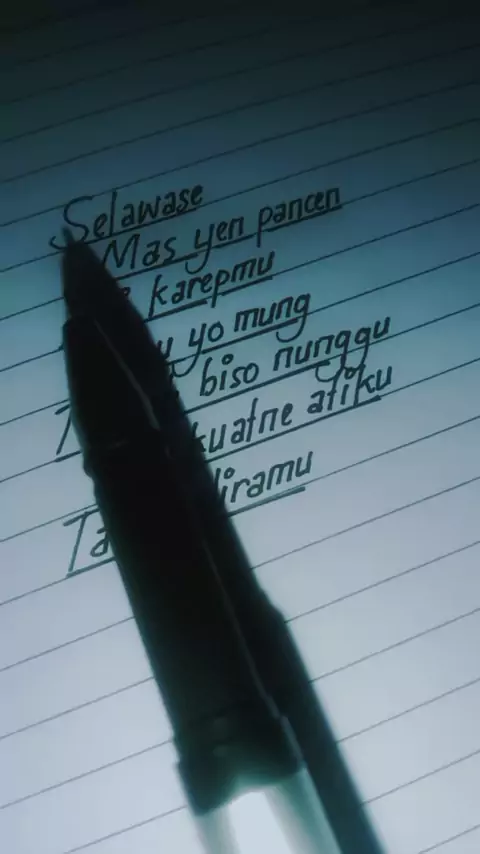 Selawase
Mas yen pancen
karepmu
yo mung
biso nunggu
kuatne atiku
iramu